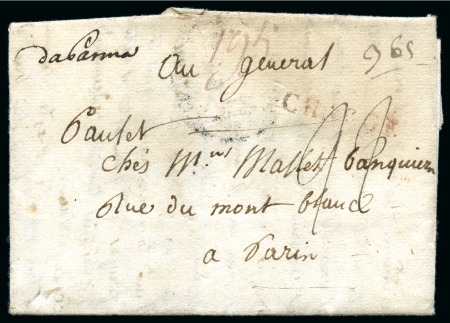 da Parma
Au general
965
Paulet
chés Mrs Mallet banquier
Rue du mont blanc
a Paris